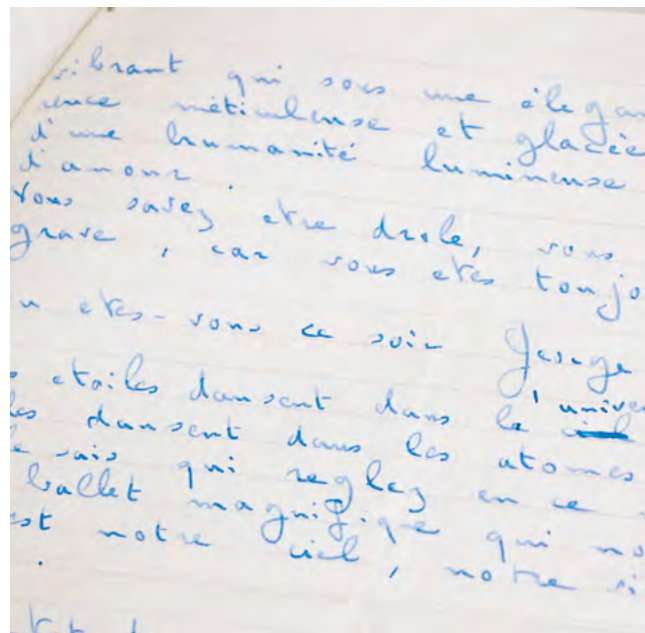 vibrant qui sous une élégan
rence méticuleuse et glacée
d'une humanité lumineuse
d'amour.
Vous savez etre drole, vous
grave, car vous etes toujo
u etes-vous ce soir George
s etoiles dansent dans l'univer
les dansent dans les atomes
le sais qui reglez en ce
ballet magnifique qui no
st notre ciel, notre si
.